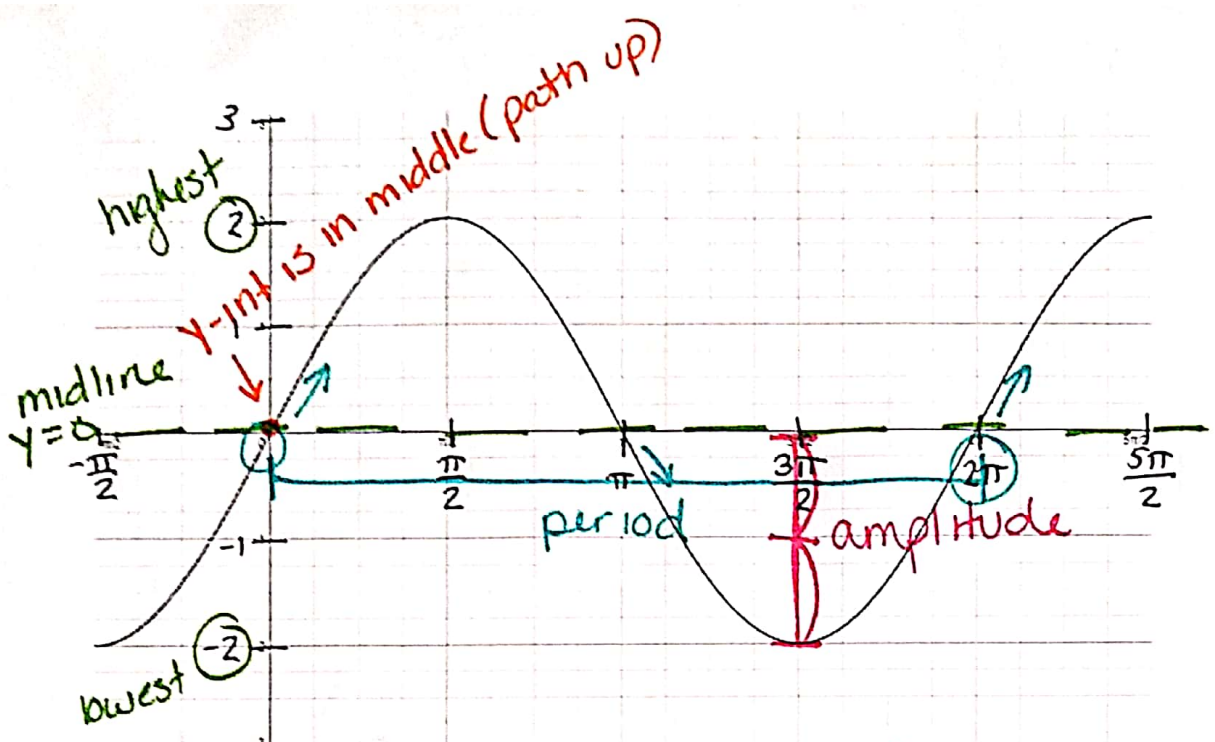 y-int is in middle (path up)
3
highest
2
1
midline
y=0
-π/2
π/2
π
3π/2
2π
5π/2
period
amplitude
-1
-2
lowest